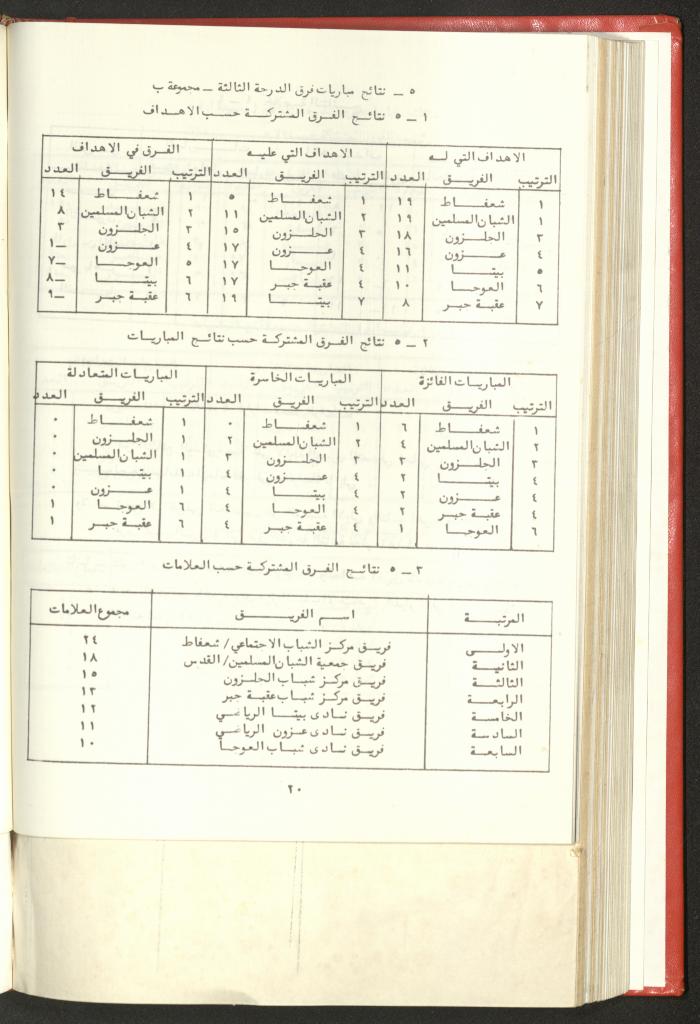 ٥ ـ نتائج مباريات فرق الدرجة الثالثة ـ مجموعة ب
١ ـ ٥ نتائج الفرق المشتركة حسب الاهداف
الاهداف التي له الاهداف التي عليه الفرق في الاهداف
الترتيب الفريق العدد الترتيب الفريق العدد الترتيب الفريق العدد
١ شعفاط ١٩ ١ شعفاط ٥ ١ شعفاط ١٤
١ الشبان المسلمين ١٩ ٢ الشبان المسلمين ١١ ٢ الشبان المسلمين ٨
٣ الجلزون ١٨ ٣ الجلزون ١٥ ٣ الجلزون ٣
٤ عزون ١٦ ٤ عزون ١٧ ٤ عزون ـ١
٥ بيتا ١١ ٤ العوجا ١٧ ٥ العوجا ـ٧
٦ العوجا ١٠ ٤ عقبة جبر ١٧ ٦ بيتا ـ٨
٧ عقبة جبر ٨ ٧ بيتا ١٩ ٦ عقبة جبر ـ٩
٢ ـ ٥ نتائج الفرق المشتركة حسب نتائج المباريات
المباريات الفائزة المباريات الخاسرة المباريات المتعادلة
الترتيب الفريق العدد الترتيب الفريق العدد الترتيب الفريق العدد
١ شعفاط ٦ ١ شعفاط ٠ ١ شعفاط ٠
٢ الشبان المسلمين ٤ ٢ الشبان المسلمين ٢ ١ الجلزون ٠
٣ الجلزون ٣ ٣ الجلزون ٣ ١ الشبان المسلمين ٠
٤ بيتا ٢ ٤ عزون ٤ ١ بيتا ٠
٤ عزون ٢ ٤ بيتا ٤ ١ عزون ٠
٤ عقبة جبر ٢ ٤ العوجا ٤ ٦ العوجا ١
٦ العوجا ١ ٤ عقبة جبر ٤ ٦ عقبة جبر ١
٣ ـ ٥ نتائج الفرق المشتركة حسب العلامات
المرتبة اسم الفريق مجموع العلامات
الاولى فريق مركز الشباب الاجتماعي/شعفاط ٢٤
الثانية فريق جمعية الشبان المسلمين/القدس ١٨
الثالثة فريق مركز شباب الجلزون ١٥
الرابعة فريق مركز شباب عقبة جبر ١٣
الخامسة فريق نادى بيتا الرياضي ١٢
السادسة فريق نادى عزون الرياضي ١١
السابعة فريق نادى شباب العوجا ١٠
٢٠